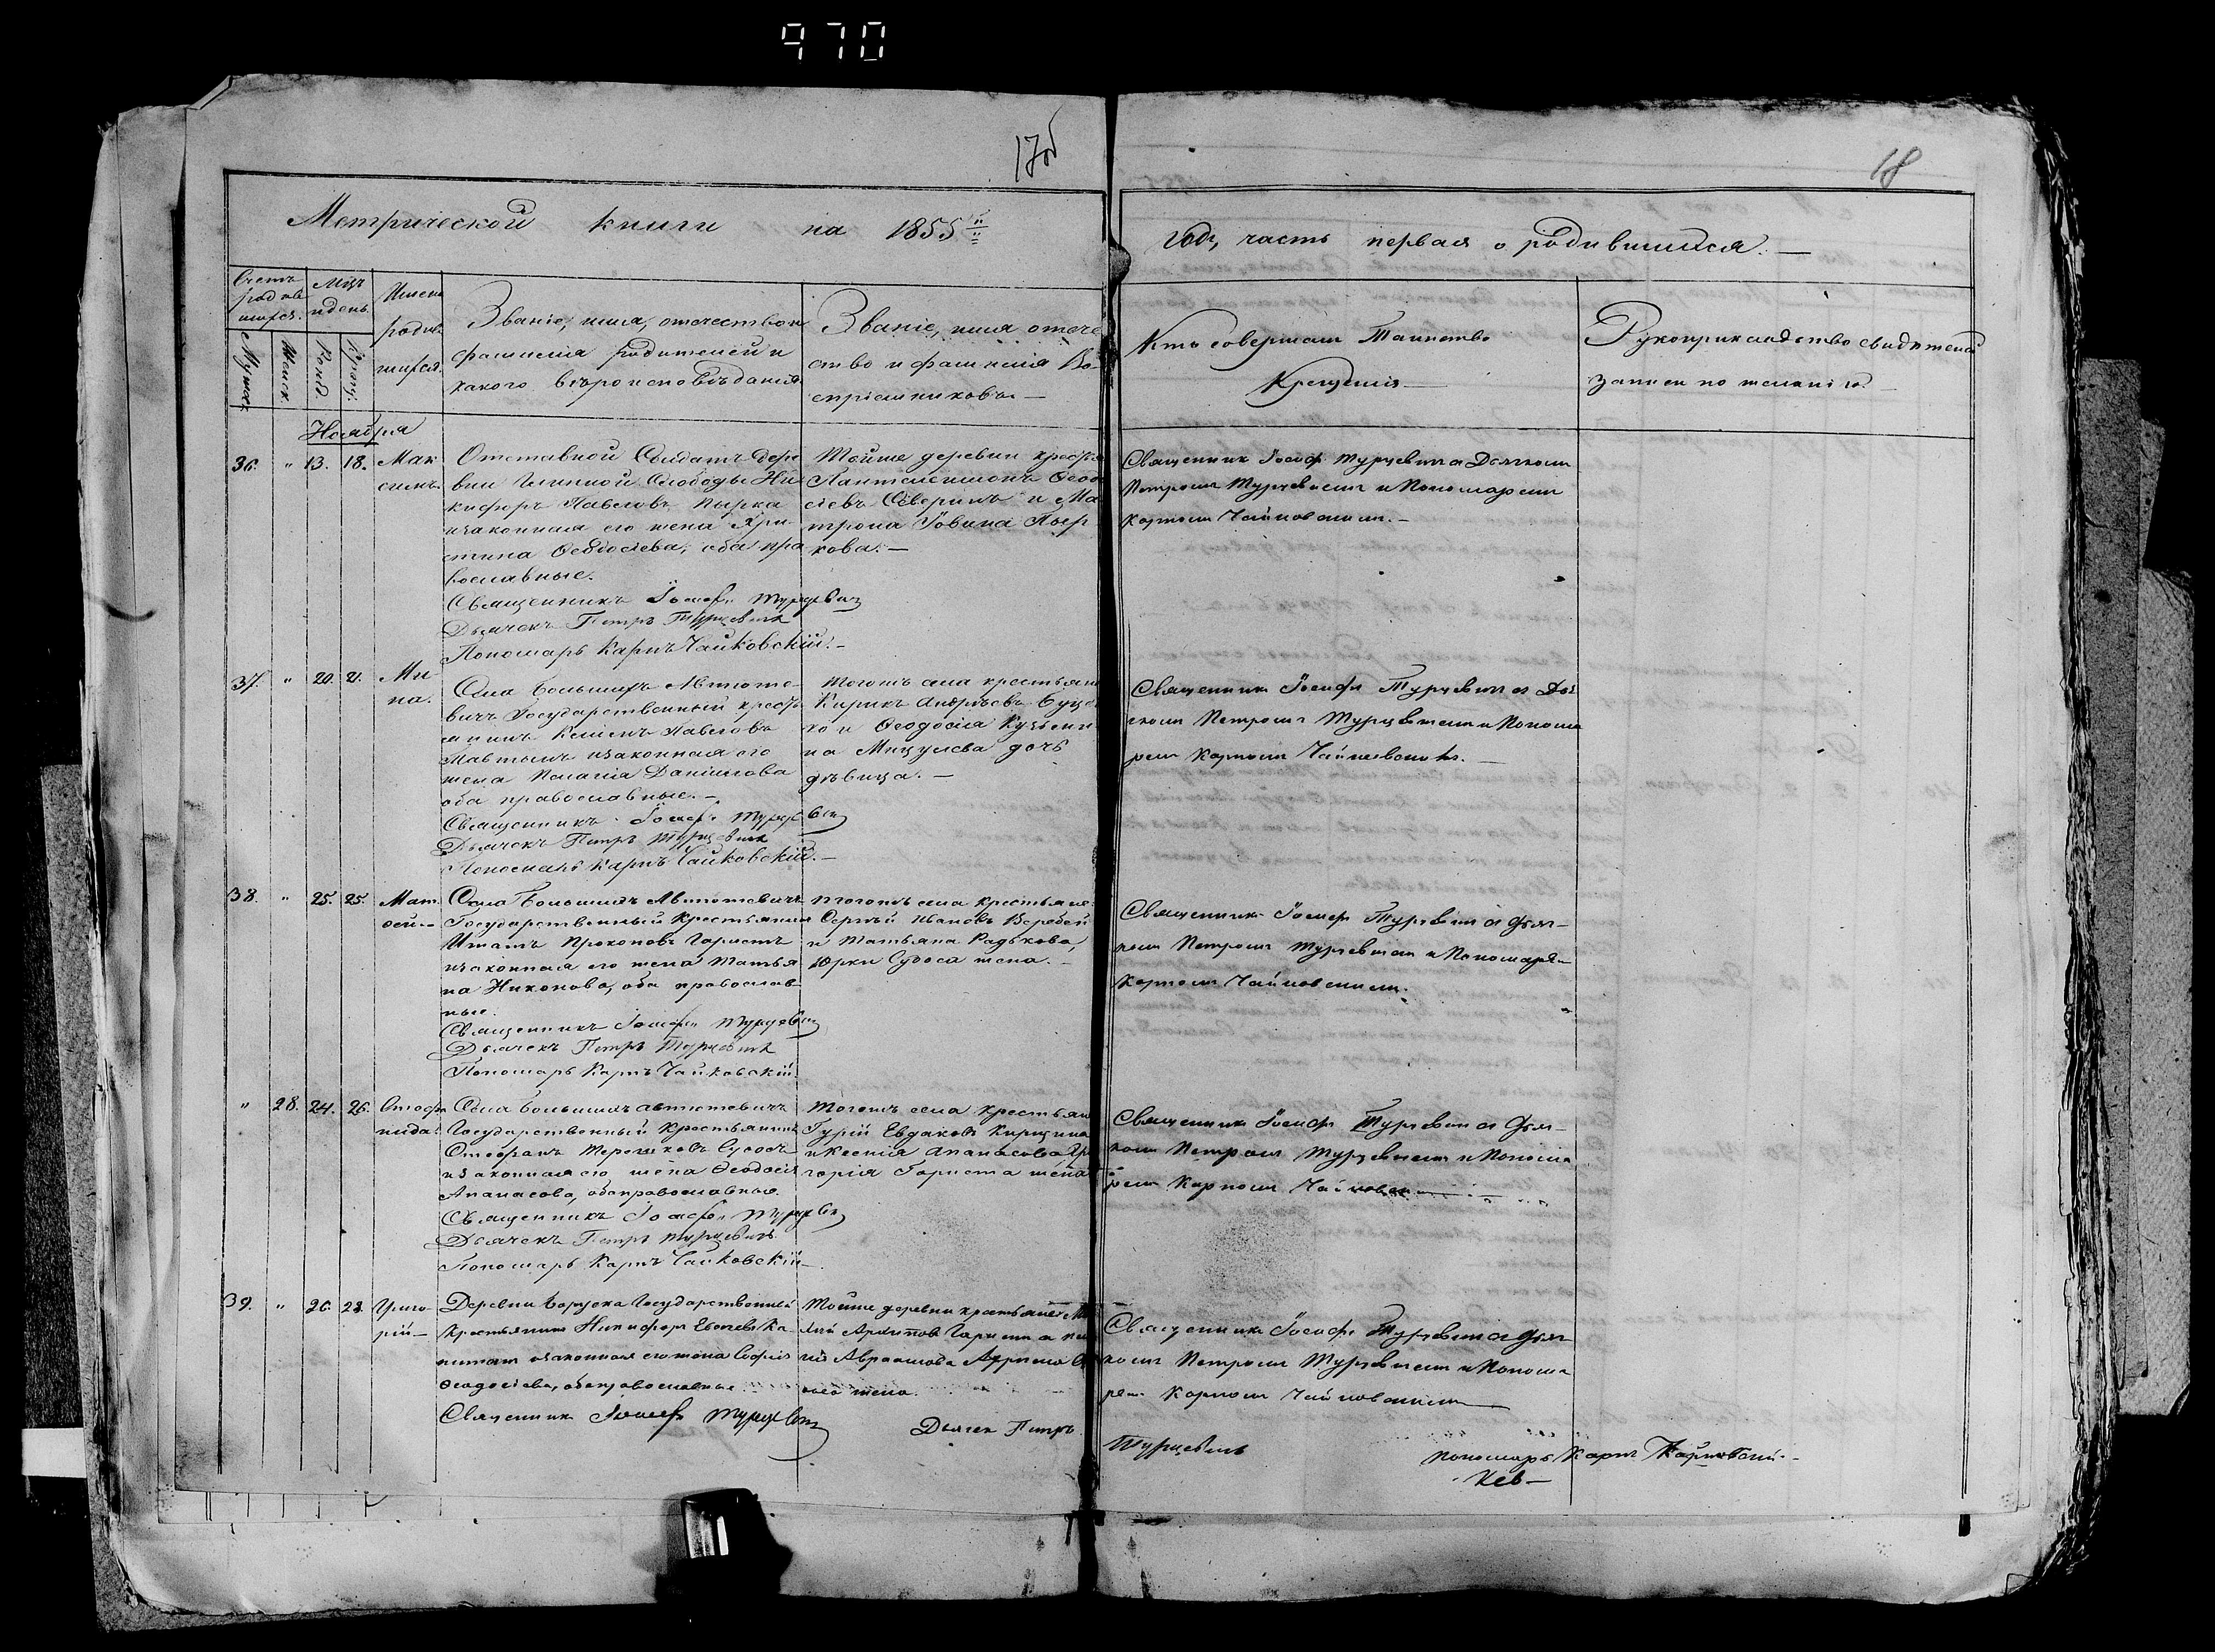 970
17об
18
Метрической книги на 1855й
годъ, часть первая о родившихся.
Счетъ родив шихся.
Мцъ и день.
Имена родив шихся.
Мужес.
Женск.
Рожд.
Крещ.
Званіе, имя, отечество и
фамилія родителей и
какого вѣроисповѣданія
Званіе, имя отече
ство и фамилія Во-
спріемниковъ.—
Кто совершалъ Таинство
Крещенія—
Рукоприкладство свидѣтелей
записи по желанію.—
Ноября
36. " 13. 18. Мак
симъ.
Отставной Солдатъ дере
вни Слободы Ни-
кифоръ Павловъ Пырка
изаконная его жена Хри-
стина Ѳеодосіева, оба пра
вославные.
Священникъ Іосифъ Турцевичъ
Дьячекъ Петръ Турцевичъ
Пономарь Карпъ Чайковскій.—
Тойже деревни
Пантелеимонъ Ѳеод
сіевъ Северинъ и Ма
трона Іовина Пыр
кова.—
Священникъ Іосифъ Турцевичъ съ Дьячкомъ
Петромъ Турцевичемъ и Пономаремъ
Карпомъ Чайковскимъ.—
37. " 20. 21. Ми
на.
Села Большихъ Автюте-
вичъ Государственный кресть
янинъ Павловъ
изаконная его
жена Пелагія Даніилова
оба православные.—
Священникъ Іосифъ Турцевичъ
Дьячекъ Петръ Турцевичъ
Пономарь Карпъ Чайковскій.—
Тогожъ села крестьян
Кирикъ Андреевъ
и Ѳеодосія Кузьми
на дочь
дѣвица.—
Священникъ Іосифъ Турцевичъ съ Дья
чкомъ Петромъ Турцевичемъ и Понома
ремъ Карпомъ Чайковскимъ.—
38. " 25. 25. Мат
ѳей—
Села Большихъ Автютевичъ
Государственный Крестьянинъ
Игнатъ Прокоповъ Гаристъ
изаконная его жена Татья
на Никонова, оба православ
ные.
Священникъ Іосифъ Турцевичъ
Дьячекъ Петръ Турцевичъ
Пономарь Карпъ Чайковскій.
Тогожъ села крестьяне
Сергѣй Ивановъ Воробей
и Татьяна Радькова,
Юрки Судоса жена.—
Священникъ Іосифъ Турцевичъ съ Дьяч-
комъ Петромъ Турцевичемъ и Пономаремъ
Карпомъ Чайковскимъ.
" 28. 24. 26. Стефа
нида.
Села Большихъ Автютевичъ
Государственный Крестьянинъ
Стефанъ Терешковъ Судосъ
изаконная его жена Ѳеодосія
Апанасова, оба православные.
Священникъ Іосифъ Турцевичъ
Дьячекъ Петръ Турцевичъ
Пономарь Карпъ Чайковскій—
Тогожъ села крестьян
Гурій Евдаковъ
и Ксенія Апанасова Гри
горія Гариста жена
Священникъ Іосифъ Турцевичъ съ Дьяч-
комъ Петромъ Турцевичемъ и Понома
ремъ Карпомъ Чайковскимъ
39. " 26. 28. Григо-
рій—
Деревни Боруска Государственный
Крестьянинъ Никифоръ Ка-
изаконная его жена Софія
Ѳеодосіева, оба православные
Священникъ Іосифъ Турцевичъ
Тойже деревни крестьяне
Архиповъ Гаристъ и
Авраамова
жена.
Священникъ Іосифъ Турцевичъ съ Дьяч-
комъ Петромъ Турцевичемъ и Понома
ремъ Карпомъ Чайковскимъ—
Дьячек Петръ Турцевичъ
Пономарь Карпъ Чайковскій.—